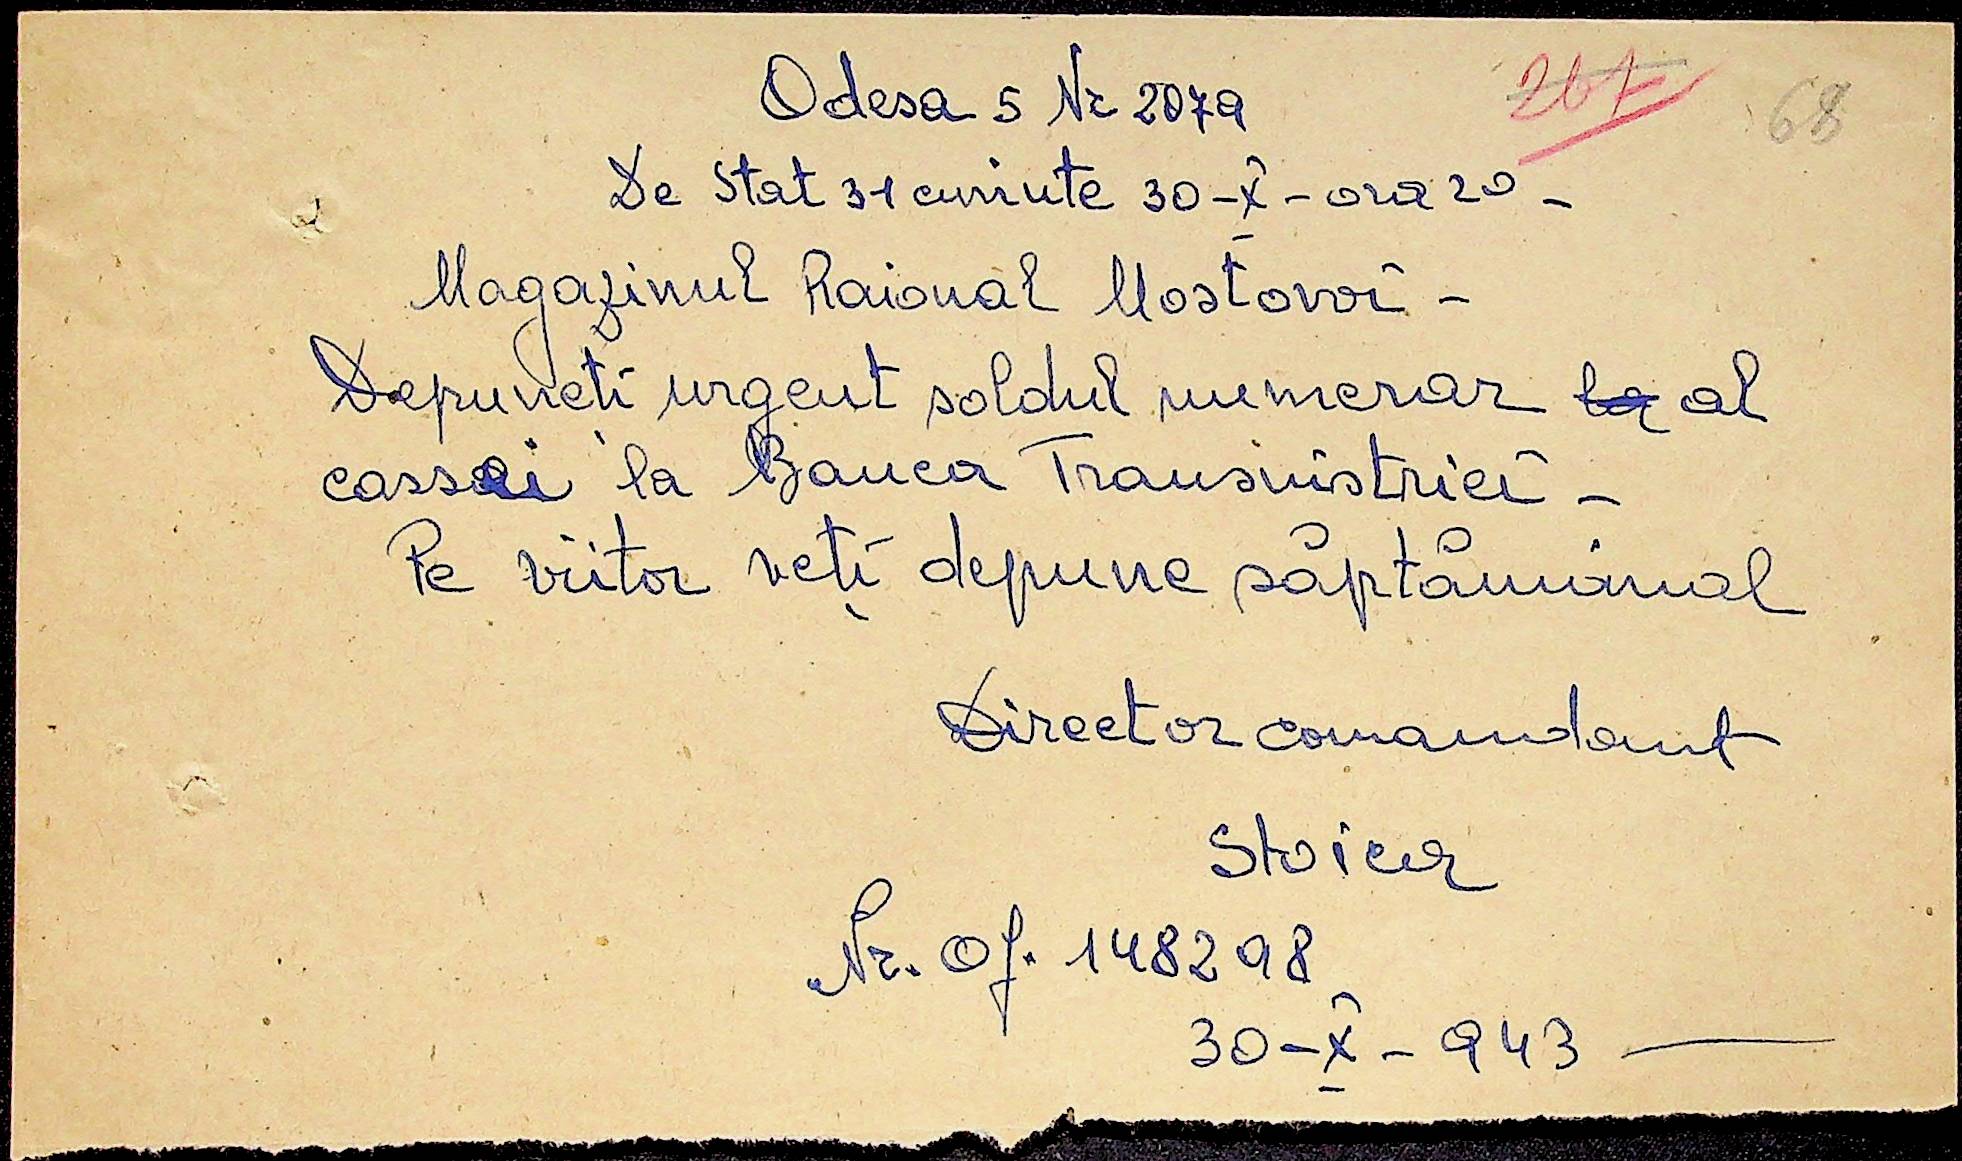 Odesa 5 Nr 2079
267 68
De Stat 31 cuvinte 30-X-ora 20 -
Magazinul Raional Mostovoi -
Depuneti urgent soldul numerar la al
cassei la Banca Transnistriei -
Pe viitor veți depune săptămânal
Director comandant
Stoica
Nr. Of. 148298
30-X-943